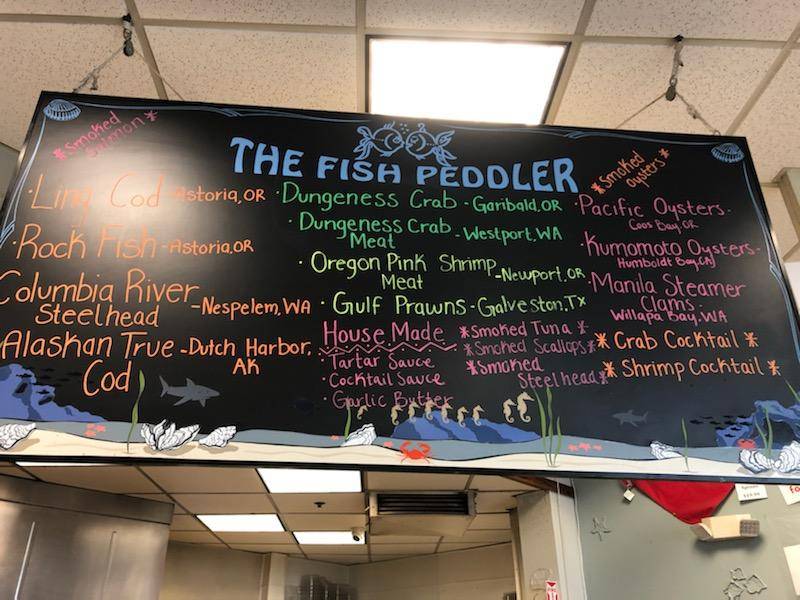 *Smoked Salmon*
THE FISH PEDDLER
*Smoked Oysters*
· Ling Cod - Astoria, OR
· Rock Fish - Astoria, OR
Columbia River
Steelhead - Nespelem, WA
Alaskan True - Dutch Harbor,
Cod AK
· Dungeness Crab - Garibald, OR
· Dungeness Crab - Westport, WA
Meat
· Oregon Pink Shrimp - Newport, OR
Meat
· Gulf Prawns - Galveston, TX
House Made
· Tartar Sauce
· Cocktail Sauce
· Garlic Butter
*Smoked Tuna*
*Smoked Scallops*
*Smoked
Steelhead*
· Pacific Oysters -
Coos Bay, OR
· Kumomoto Oysters -
Humboldt Bay, CA
· Manila Steamer
Clams -
Willapa Bay, WA
* Crab Cocktail *
* Shrimp Cocktail *